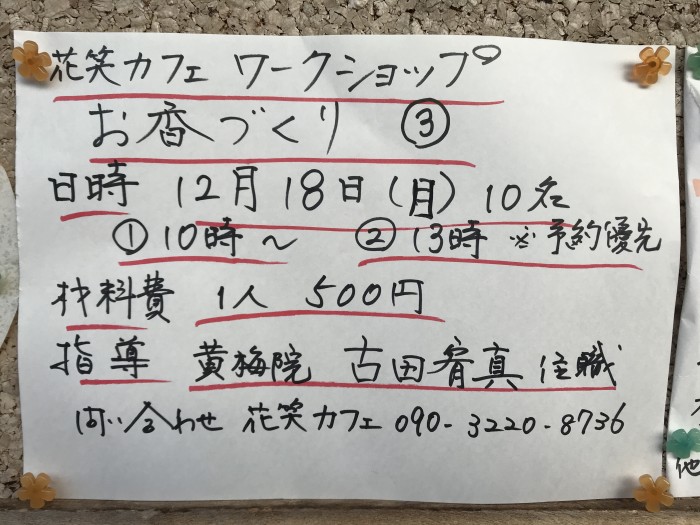 花笑カフェ ワークショップ
お香づくり ③
日時 12月18日(月) 10名
①10時~ ②13時 ※予約優先
材料費 1人 500円
指導 黄梅院 古田宥真 住職
問い合わせ 花笑カフェ 090-3220-8736
他